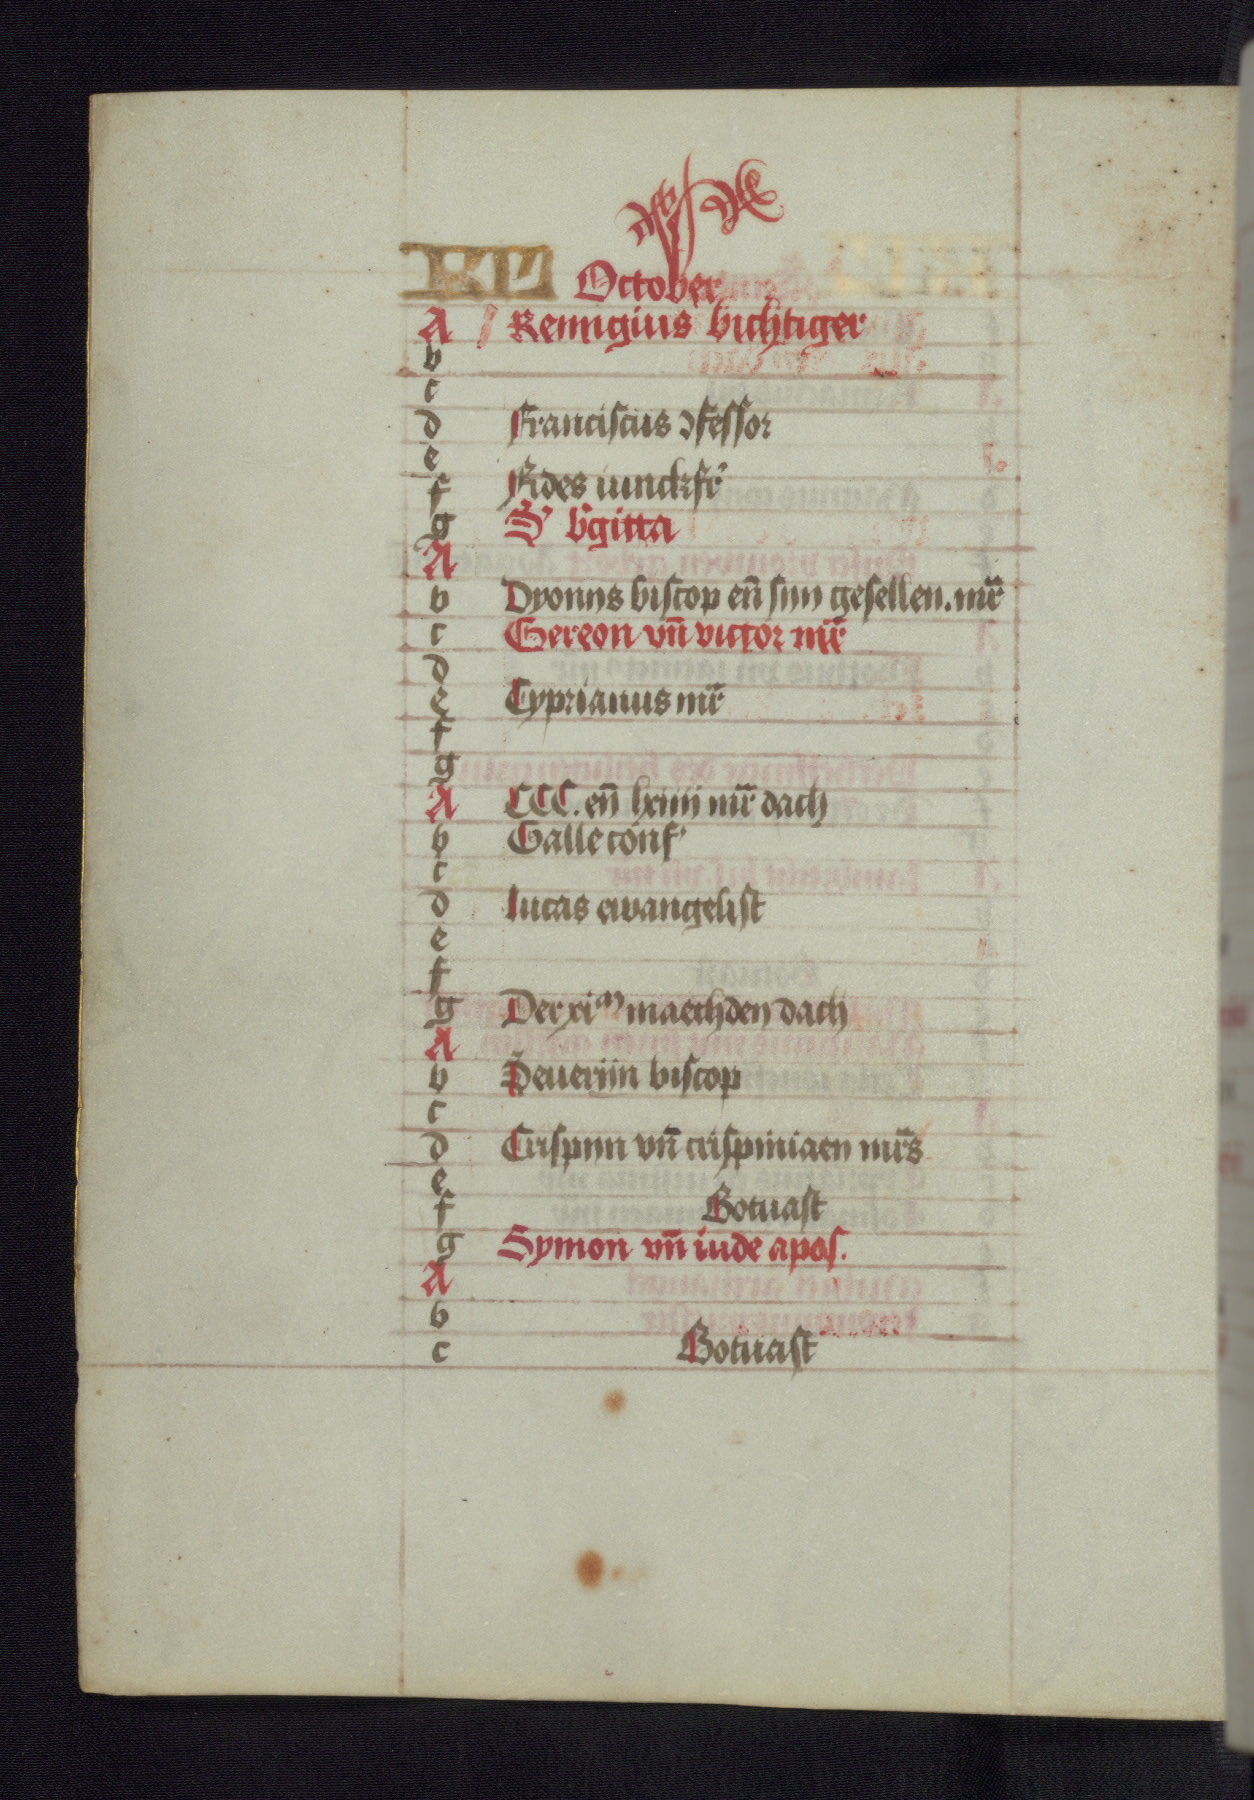 KL October
A Remigius bichtiger
b
c
d Franciscus ɔfessor
e
f Fides iunckfr̄
g S' b'gitta
A
b Dyonijs biscop en̄ sijn gesellen. mr̄e
c Gereon vn̄ victor mr̄e
d
e Cyprianus mr̄e
f
g
A CCC. en̄ lxiiii mr̄e dach
b Galle conf'
c
d lucas ewangelist
e
f
g Der xi^m maechden dach
A
b Seuerijn biscop
c
d Crispyn vn̄ crispiniaen mr̄s
e
f Botuast
g Symon vn̄ iude apos.
A
b
c Botuast